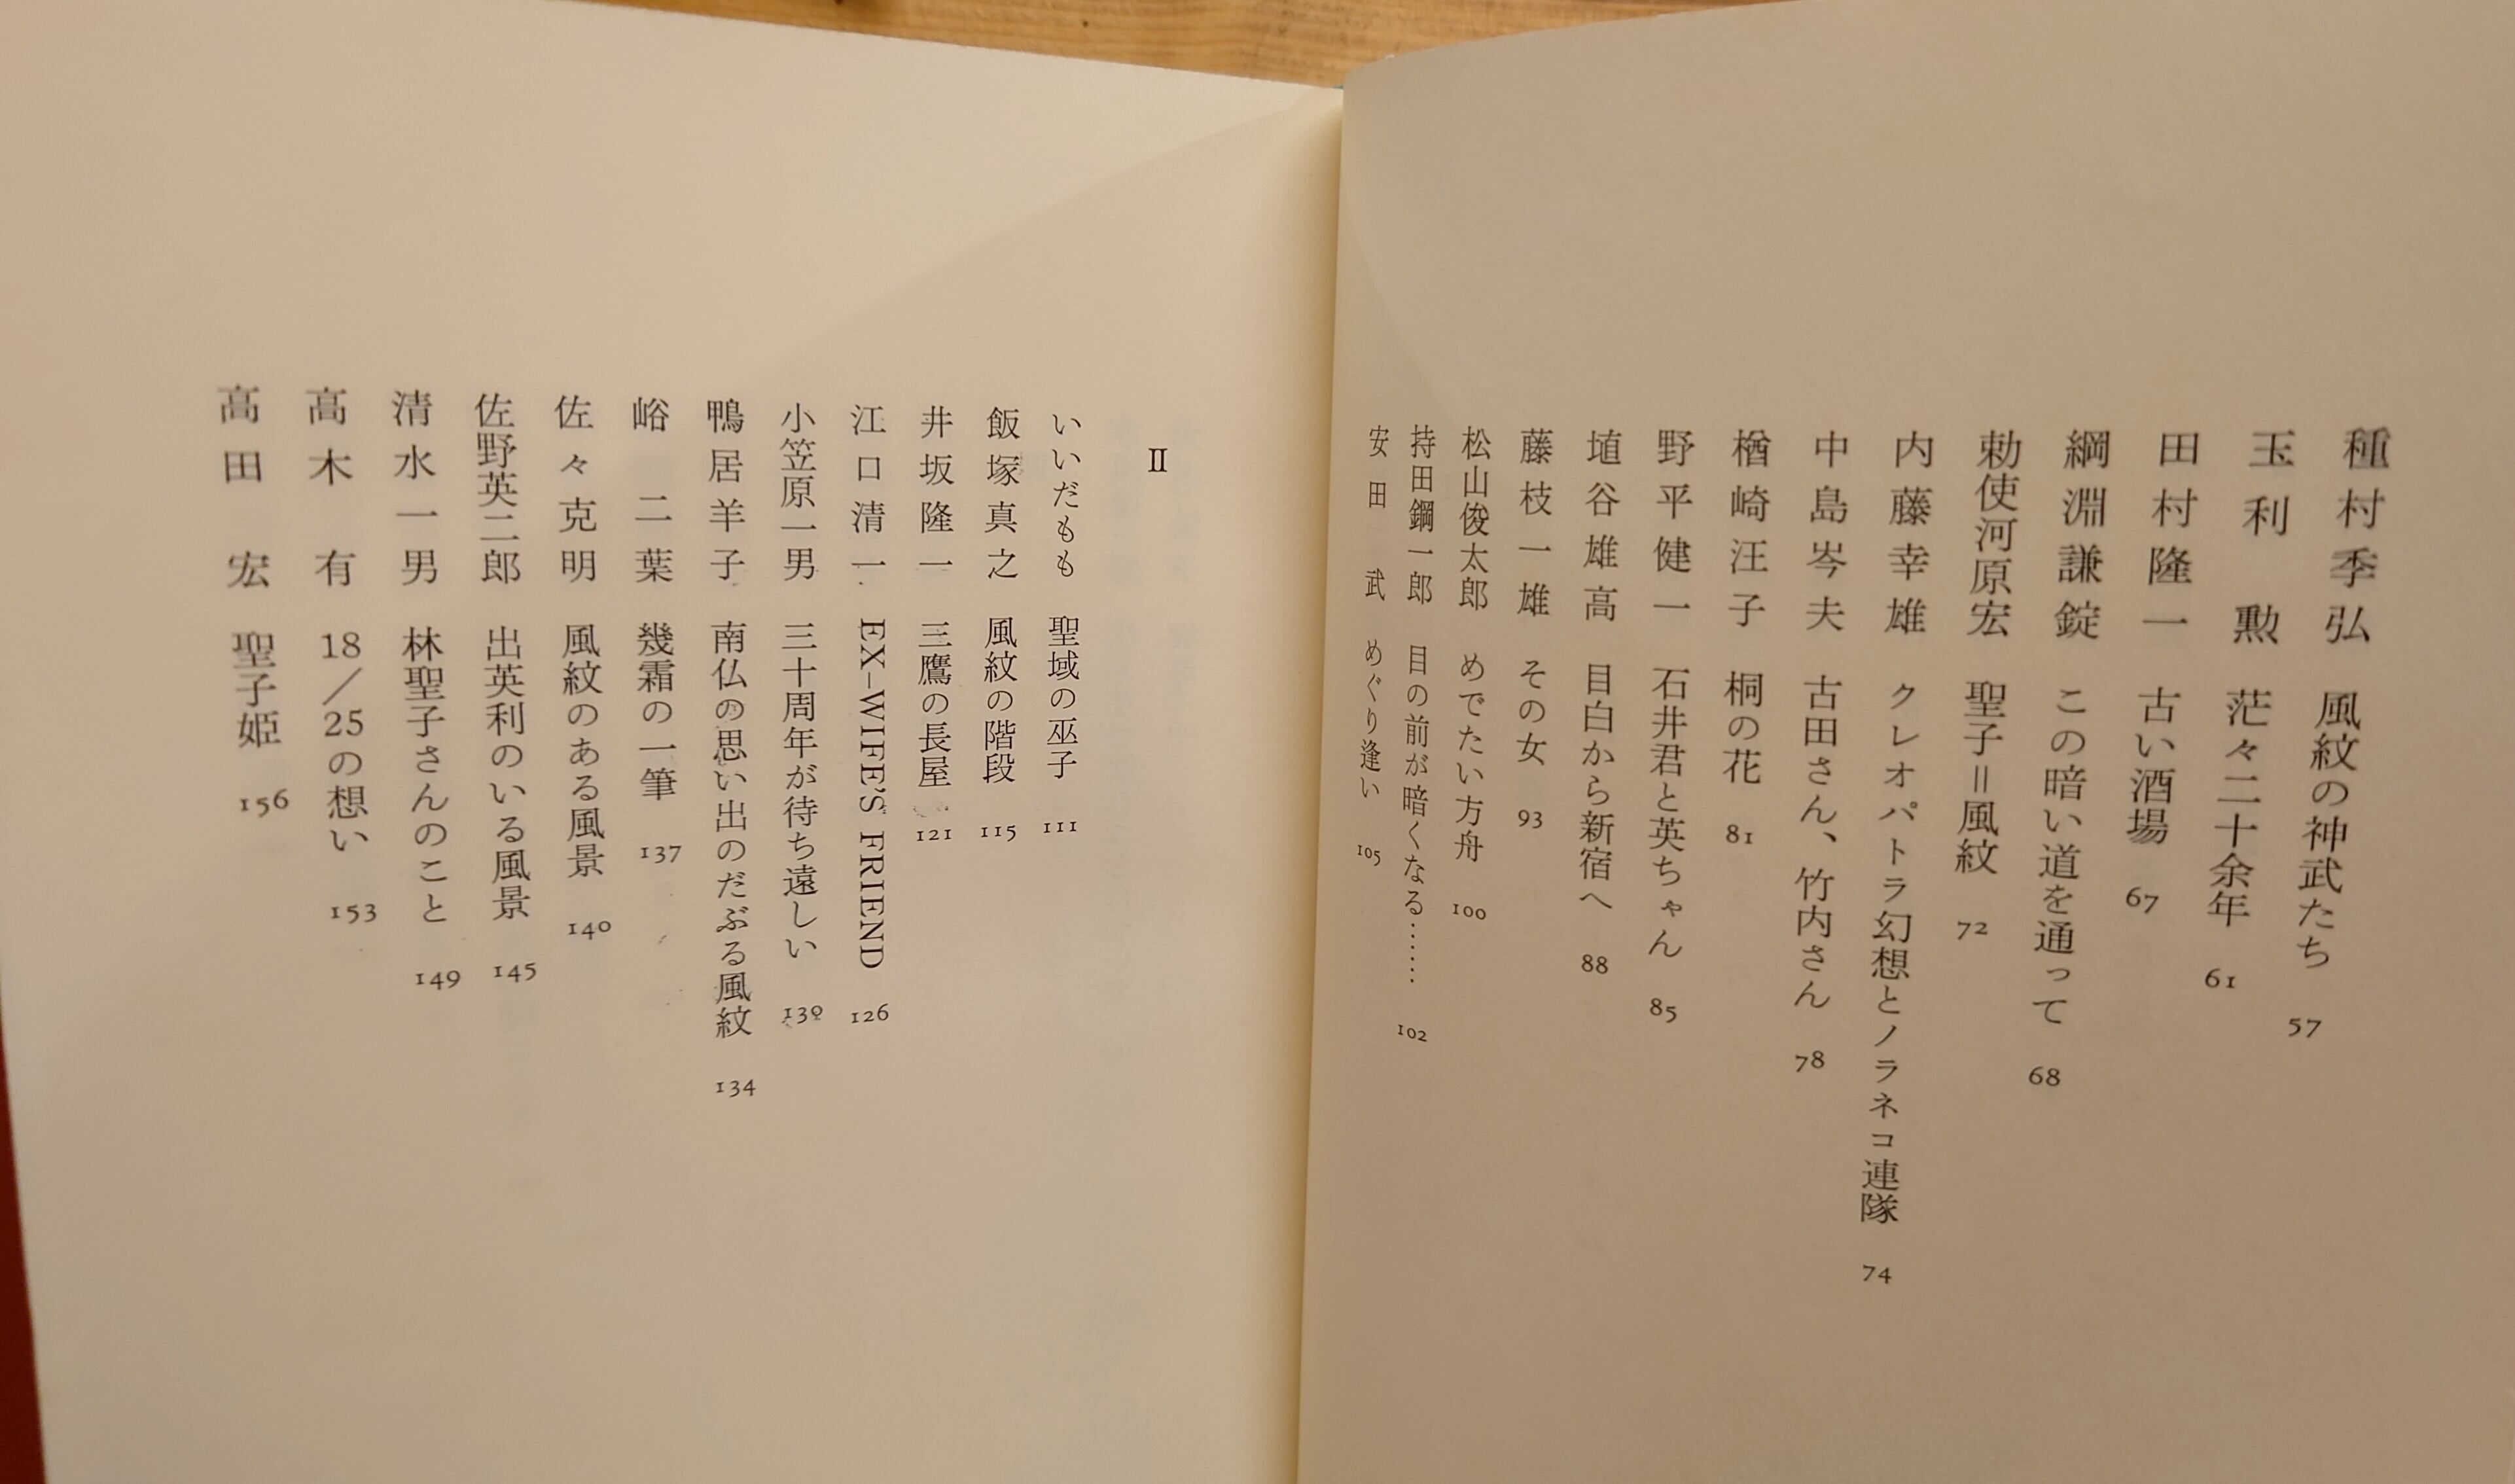 種村季弘 風紋の神武たち 57
玉利 勲 茫々二十余年 61
田村隆一 古い酒場 67
綱淵謙錠 この暗い道を通って 68
勅使河原宏 聖子=風紋 72
内藤幸雄 クレオパトラ幻想とノラネコ連隊 74
中島岑夫 古田さん、竹内さん 78
楢崎汪子 桐の花 81
野平健一 石井君と英ちゃん 85
埴谷雄高 目白から新宿へ 88
藤枝一雄 その女 93
松山俊太郎 めでたい方舟 100
持田鋼一郎 目の前が暗くなる…… 102
安田 武 めぐり逢い 105
Ⅱ
いいだもも 聖域の巫子 111
飯塚真之 風紋の階段 115
井坂隆一 三鷹の長屋 121
江口清一 EX-WIFE'S FRIEND 126
小笠原一男 三十周年が待ち遠しい 130
鴨居羊子 南仏の思い出のだぶる風紋 134
峪 二葉 幾霜の一筆 137
佐々克明 風紋のある風景 140
佐野英二郎 出英利のいる風景 145
清水一男 林聖子さんのこと 149
高木 有 18/25の想い 153
高田 宏 聖子姫 156